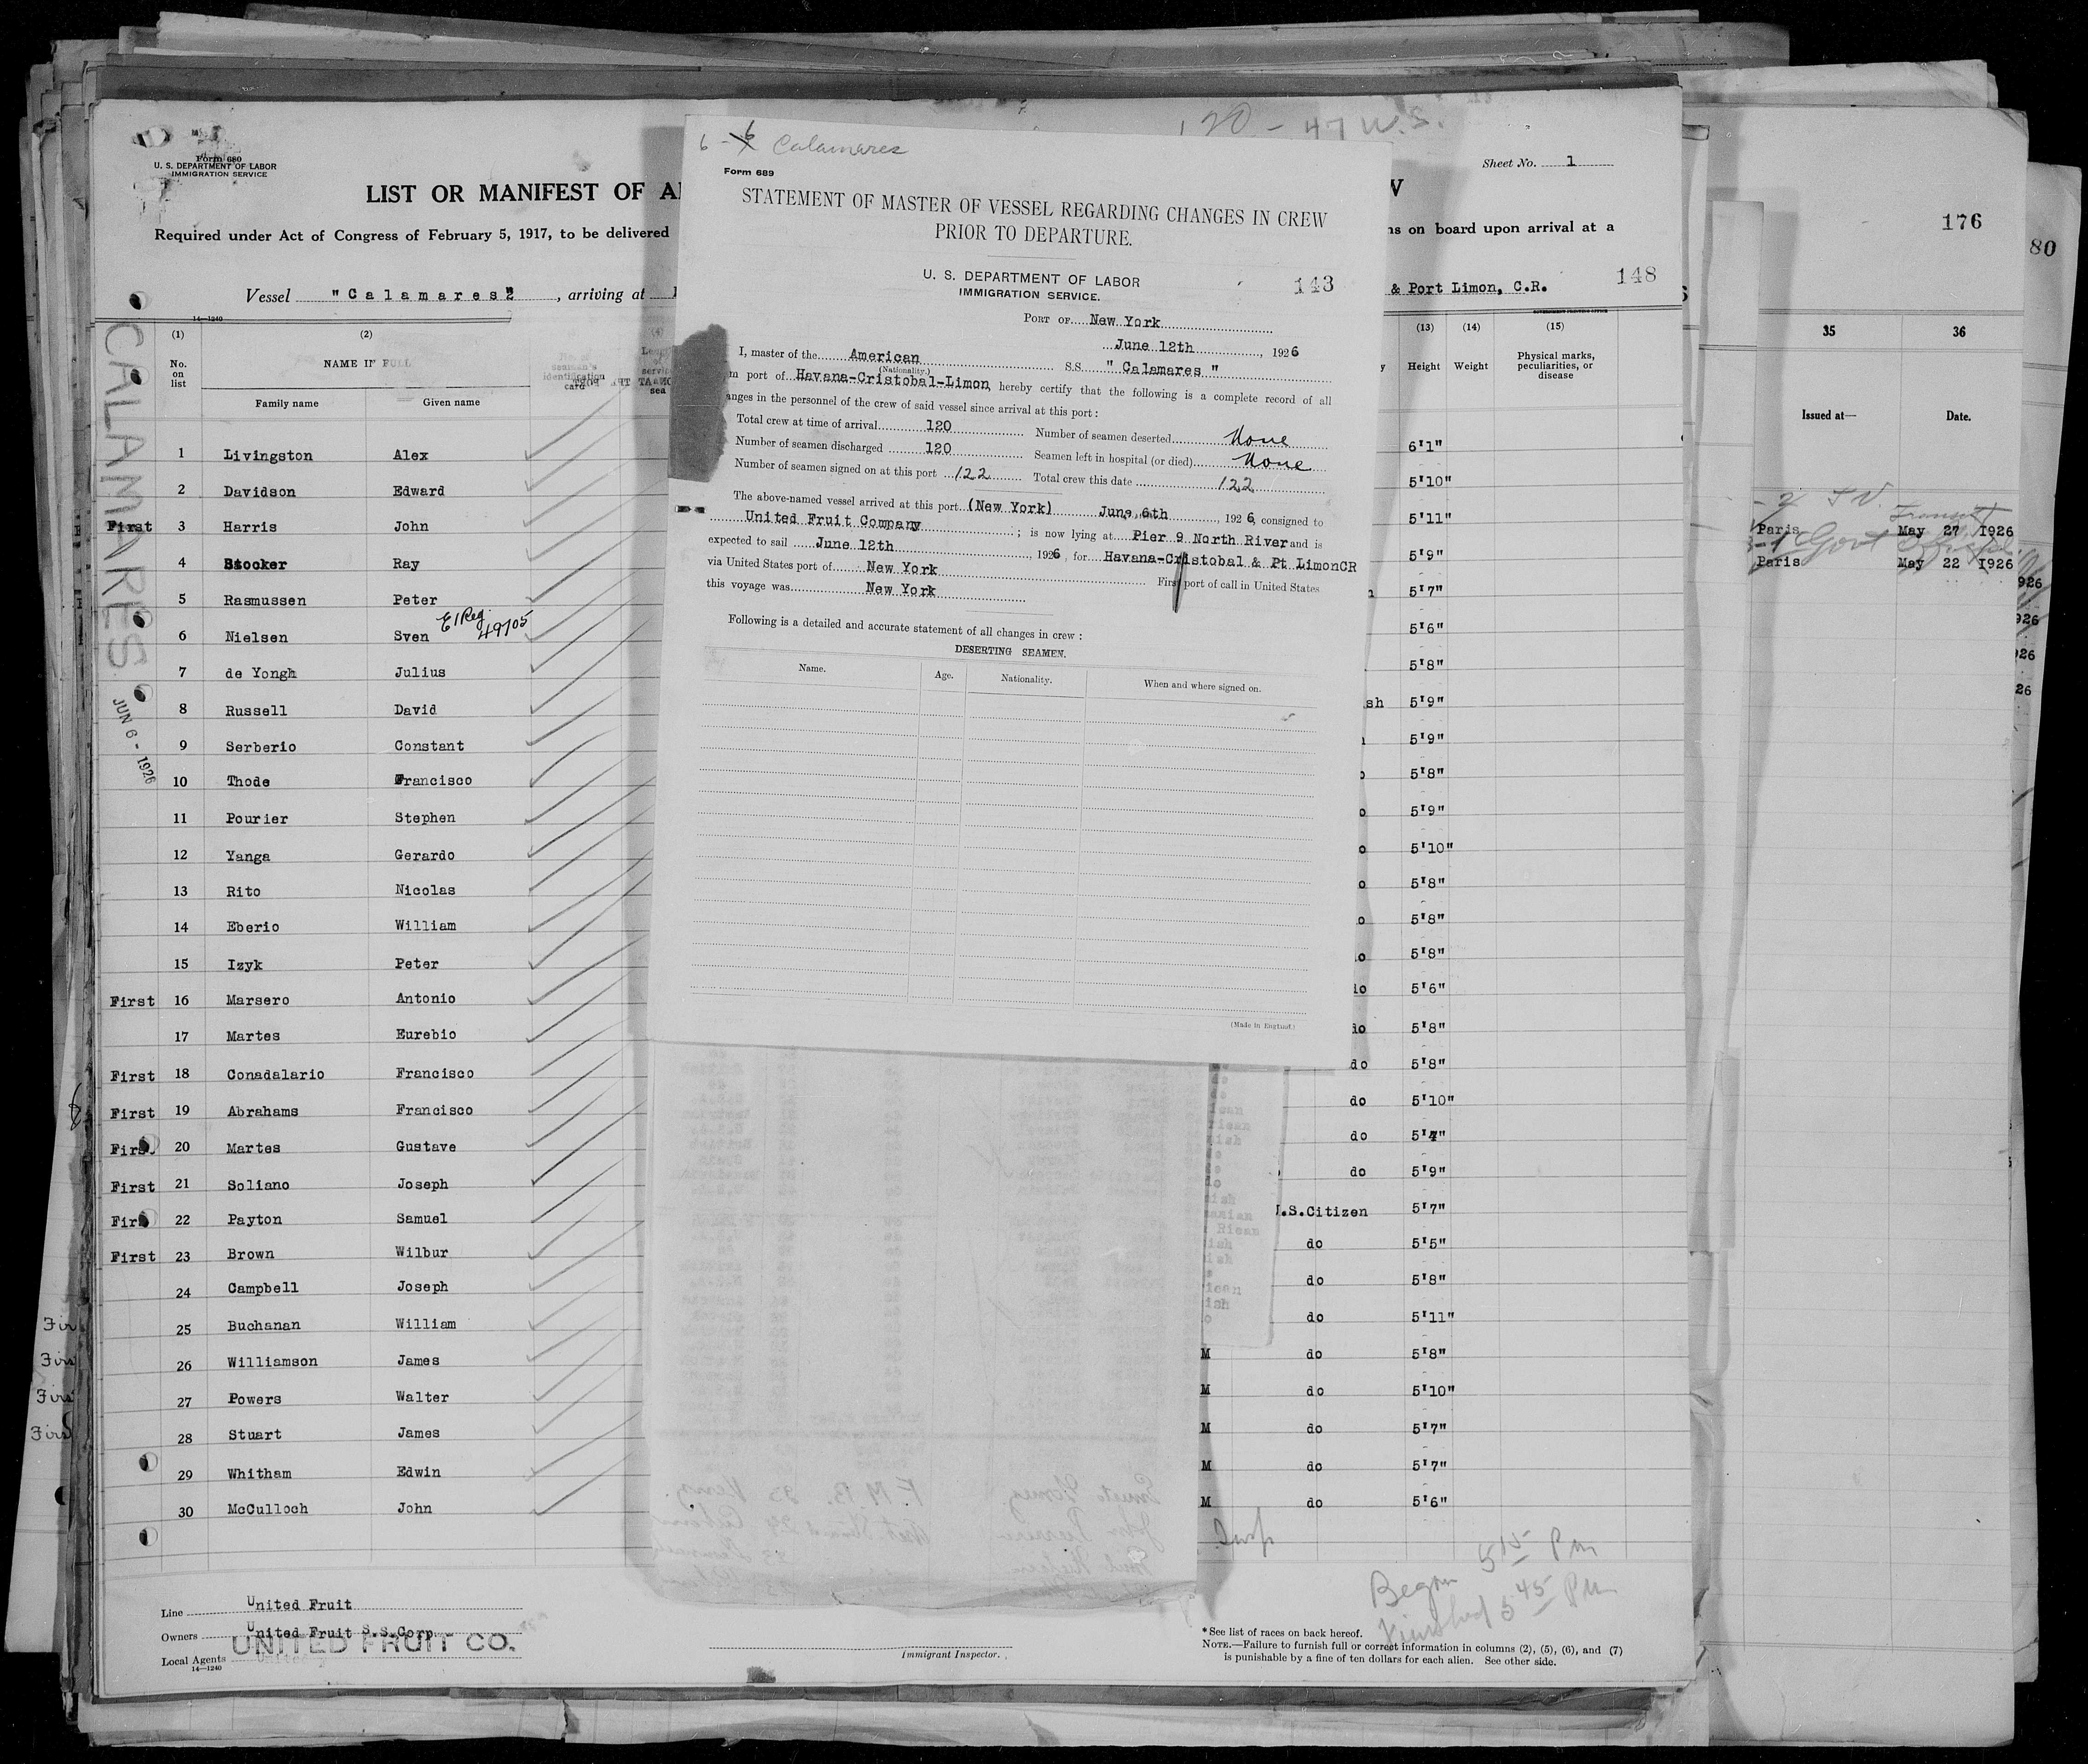 120 - 47 W.S.
6 - 6 Calamares
Form 680
U. S. DEPARTMENT OF LABOR
IMMIGRATION SERVICE
Sheet No. 1
LIST OR MANIFEST OF AL
Required under Act of Congress of February 5, 1917, to be delivered
ns on board upon arrival at a
Vessel "Calamares", arriving at
& Port Limon, C.R.
148
14—1240
CALAMARES
JUN 6 - 1926
(1) (2)
No. on list
NAME IN FULL
Family name Given name
1 Livingston Alex
2 Davidson Edward
First 3 Harris John
4 Stocker Ray
5 Rasmussen Peter
6 Nielsen Sven El Reg. 49705
7 de Yongh Julius
8 Russell David
9 Serberio Constant
10 Thode Francisco
11 Pourier Stephen
12 Yanga Gerardo
13 Rito Nicolas
14 Eberio William
15 Izyk Peter
First 16 Marsero Antonio
17 Martes Eurebio
First 18 Conadalario Francisco
First 19 Abrahams Francisco
First 20 Martes Gustave
First 21 Soliano Joseph
First 22 Payton Samuel
First 23 Brown Wilbur
24 Campbell Joseph
25 Buchanan William
26 Williamson James
27 Powers Walter
28 Stuart James
29 Whitham Edwin
30 McCulloch John
Line United Fruit
Owners United Fruit S.S.Corp.
Local Agents UNITED FRUIT CO.
14—1240
Form 689
STATEMENT OF MASTER OF VESSEL REGARDING CHANGES IN CREW
PRIOR TO DEPARTURE.
U. S. DEPARTMENT OF LABOR
IMMIGRATION SERVICE.
143
PORT OF New York
June 12th, 1926
I, master of the American S.S. "Calamares"
(Nationality.)
m port of Havana-Cristobal-Limon, hereby certify that the following is a complete record of all
anges in the personnel of the crew of said vessel since arrival at this port:
Total crew at time of arrival 120 Number of seamen deserted None
Number of seamen discharged 120 Seamen left in hospital (or died) None
Number of seamen signed on at this port 122 Total crew this date 122
The above-named vessel arrived at this port (New York) June 6th, 1926, consigned to
United Fruit Company; is now lying at Pier 9 North River and is
expected to sail June 12th, 1926, for Havana-Cristobal & Pt LimonCR
via United States port of New York First port of call in United States
this voyage was New York
Following is a detailed and accurate statement of all changes in crew:
DESERTING SEAMEN.
Name. Age. Nationality. When and where signed on.
(Made in England.)
(13) (14) (15)
Height Weight Physical marks, peculiarities, or disease
6'1"
5'10"
5'11"
5'9"
5'7"
5'6"
5'8"
sh 5'9"
5'9"
5'8"
5'9"
5'10"
5'8"
5'8"
5'8"
do 5'6"
do 5'8"
do 5'8"
do 5'10"
do 5'4"
do 5'9"
.S.Citizen 5'7"
do 5'5"
do 5'8"
do 5'11"
M do 5'8"
M do 5'10"
M do 5'7"
M do 5'7"
M do 5'6"
Began 5 15 Pm
Finished 5 45 Pm
Immigrant Inspector.
*See list of races on back hereof.
NOTE.—Failure to furnish full or correct information in columns (2), (5), (6), and (7)
is punishable by a fine of ten dollars for each alien. See other side.
176
80
35 36
Issued at— Date.
Paris May 27 1926
Paris May 22 1926
926
926
26
26